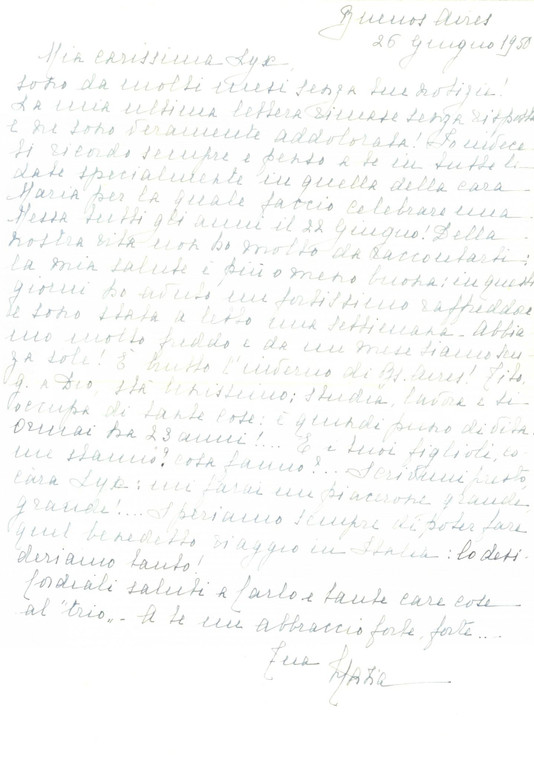 Buenos Aires
26 Giugno 1950
Mia carissima Lyx,
sono da molti mesi senza tue notizie!
La mia ultima lettera rimase senza risposta
e ne sono veramente addolorata! Io invece
ti ricordo sempre e penso a te in tutte le
date specialmente in quella della cara
Maria per la quale faccio celebrare una
Messa tutti gli anni il 22 Giugno! Della
nostra vita non ho molto da raccontarti:
la mia salute è più o meno buona; in questi
giorni ho avuto un fortissimo raffreddore
e sono stata a letto una settimana - Abbia
mo molto freddo e da un mese siamo sen
za sole! È brutto l'inverno di Bs. Aires! Tito,
g. a Dio, sta benissimo; studia, lavora e si
occupa di tante cose: è quindi pieno di vita.
Ormai ha 23 anni!... E i tuoi figlioli, co
me stanno? cosa fanno?... Scrivimi presto,
cara Lyx: mi farai un piacerone grande
grande!.... Speriamo sempre di poter fare
quel benedetto viaggio in Italia: lo desi-
deriamo tanto!
Cordiali saluti a Carlo e tante care cose
al "trio" - A te un abbraccio forte, forte....
Tua